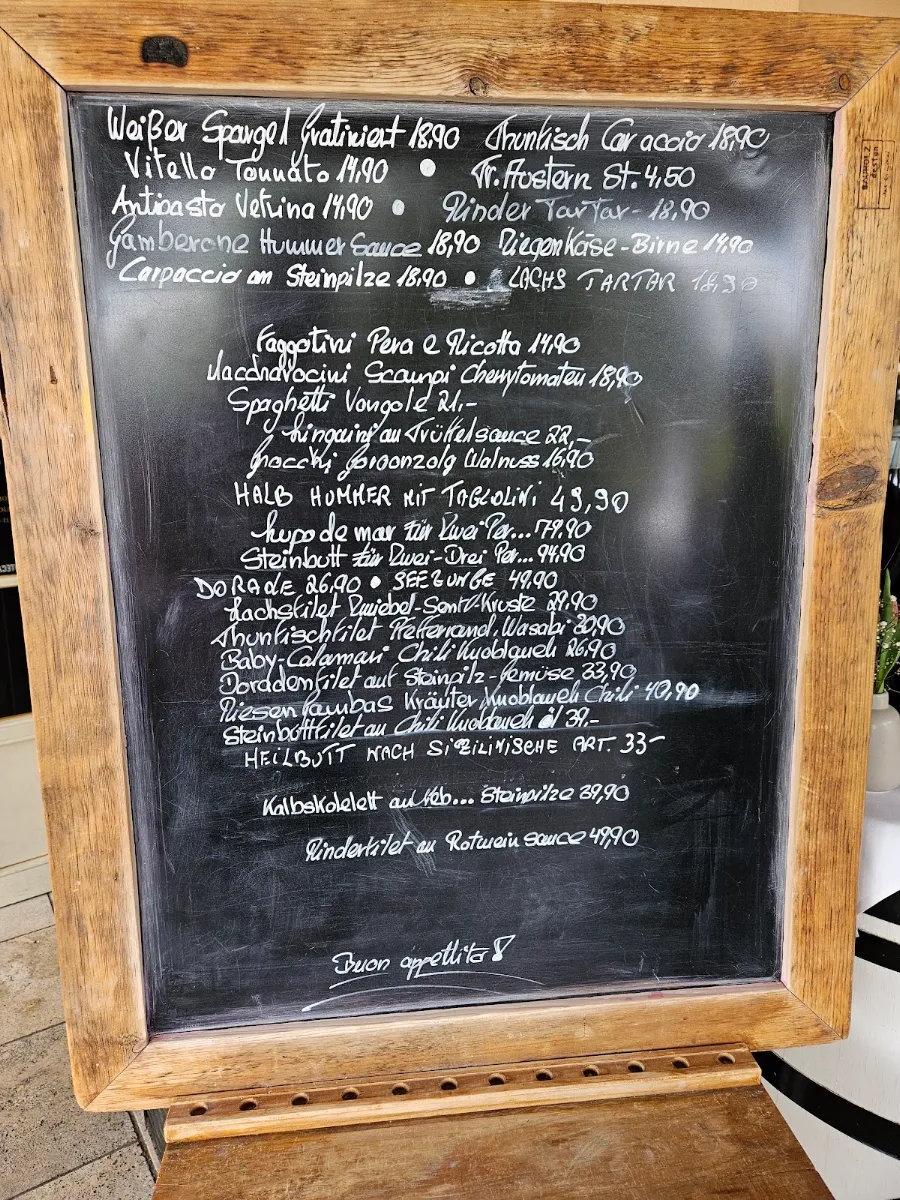 Weißer Spargel Gratiniert 18,90 Thunfisch Carpaccio 18,90
Vitello Tonnato 14,90 • Fr. Austern St. 4,50
Antipasto Vetrina 14,90 • Rinder TarTar - 18,90
Gamberone Hummer Sauce 18,90 ZiegenKäse - Birne 14,90
Carpaccio an Steinpilze 18,90 • LACHS TARTAR 18,90
Faggotini Pera e Ricotta 14,90
Scampi Cherrytomaten 18,90
Spaghetti Vongole 21,-
Linguini an Trüffelsauce 22,-
Gnocchi Gorgonzola Walnuss 16,90
HALB HUMMER MIT TAGLOLINI 49,90
Lupo de mar für Zwei Per... 79,90
Steinbutt für Zwei-Drei Per... 94,90
DORADE 26,90 • SEEZUNGE 49,90
Lachsfilet Zwiebel-Senf-Kruste 29,90
Thunfischfilet Pfefferrand, Wasabi 30,90
Baby-Calamari Chili Knoblauch 26,90
Doradenfilet auf Steinpilz-Gemüse 33,90
Riesen Gambas Kräuter, Knoblauch Chili 40,90
Steinbuttfilet an Chili Knoblauch 39,-
HEILBUTT NACH SIZILINISCHE ART. 33-
Kalbskotelett Steinpilze 39,90
Rinderfilet an Rotwein sauce 49,90
Buon appettito!